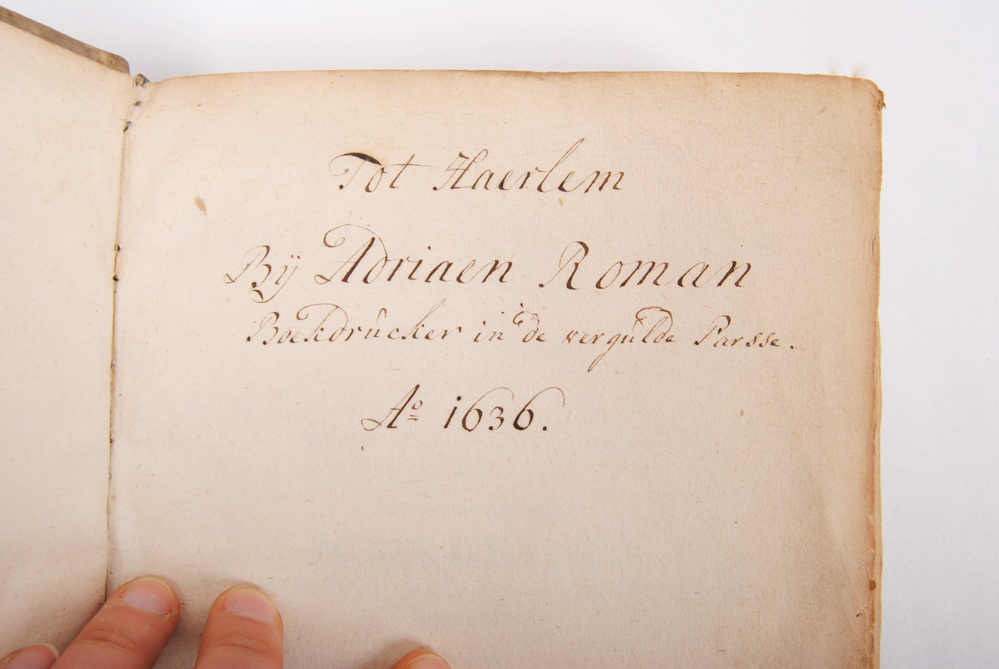 Tot Haerlem
Bÿ Adriaen Roman
Boekdrúcker in de vergúlde Parsse.
Ao 1636.